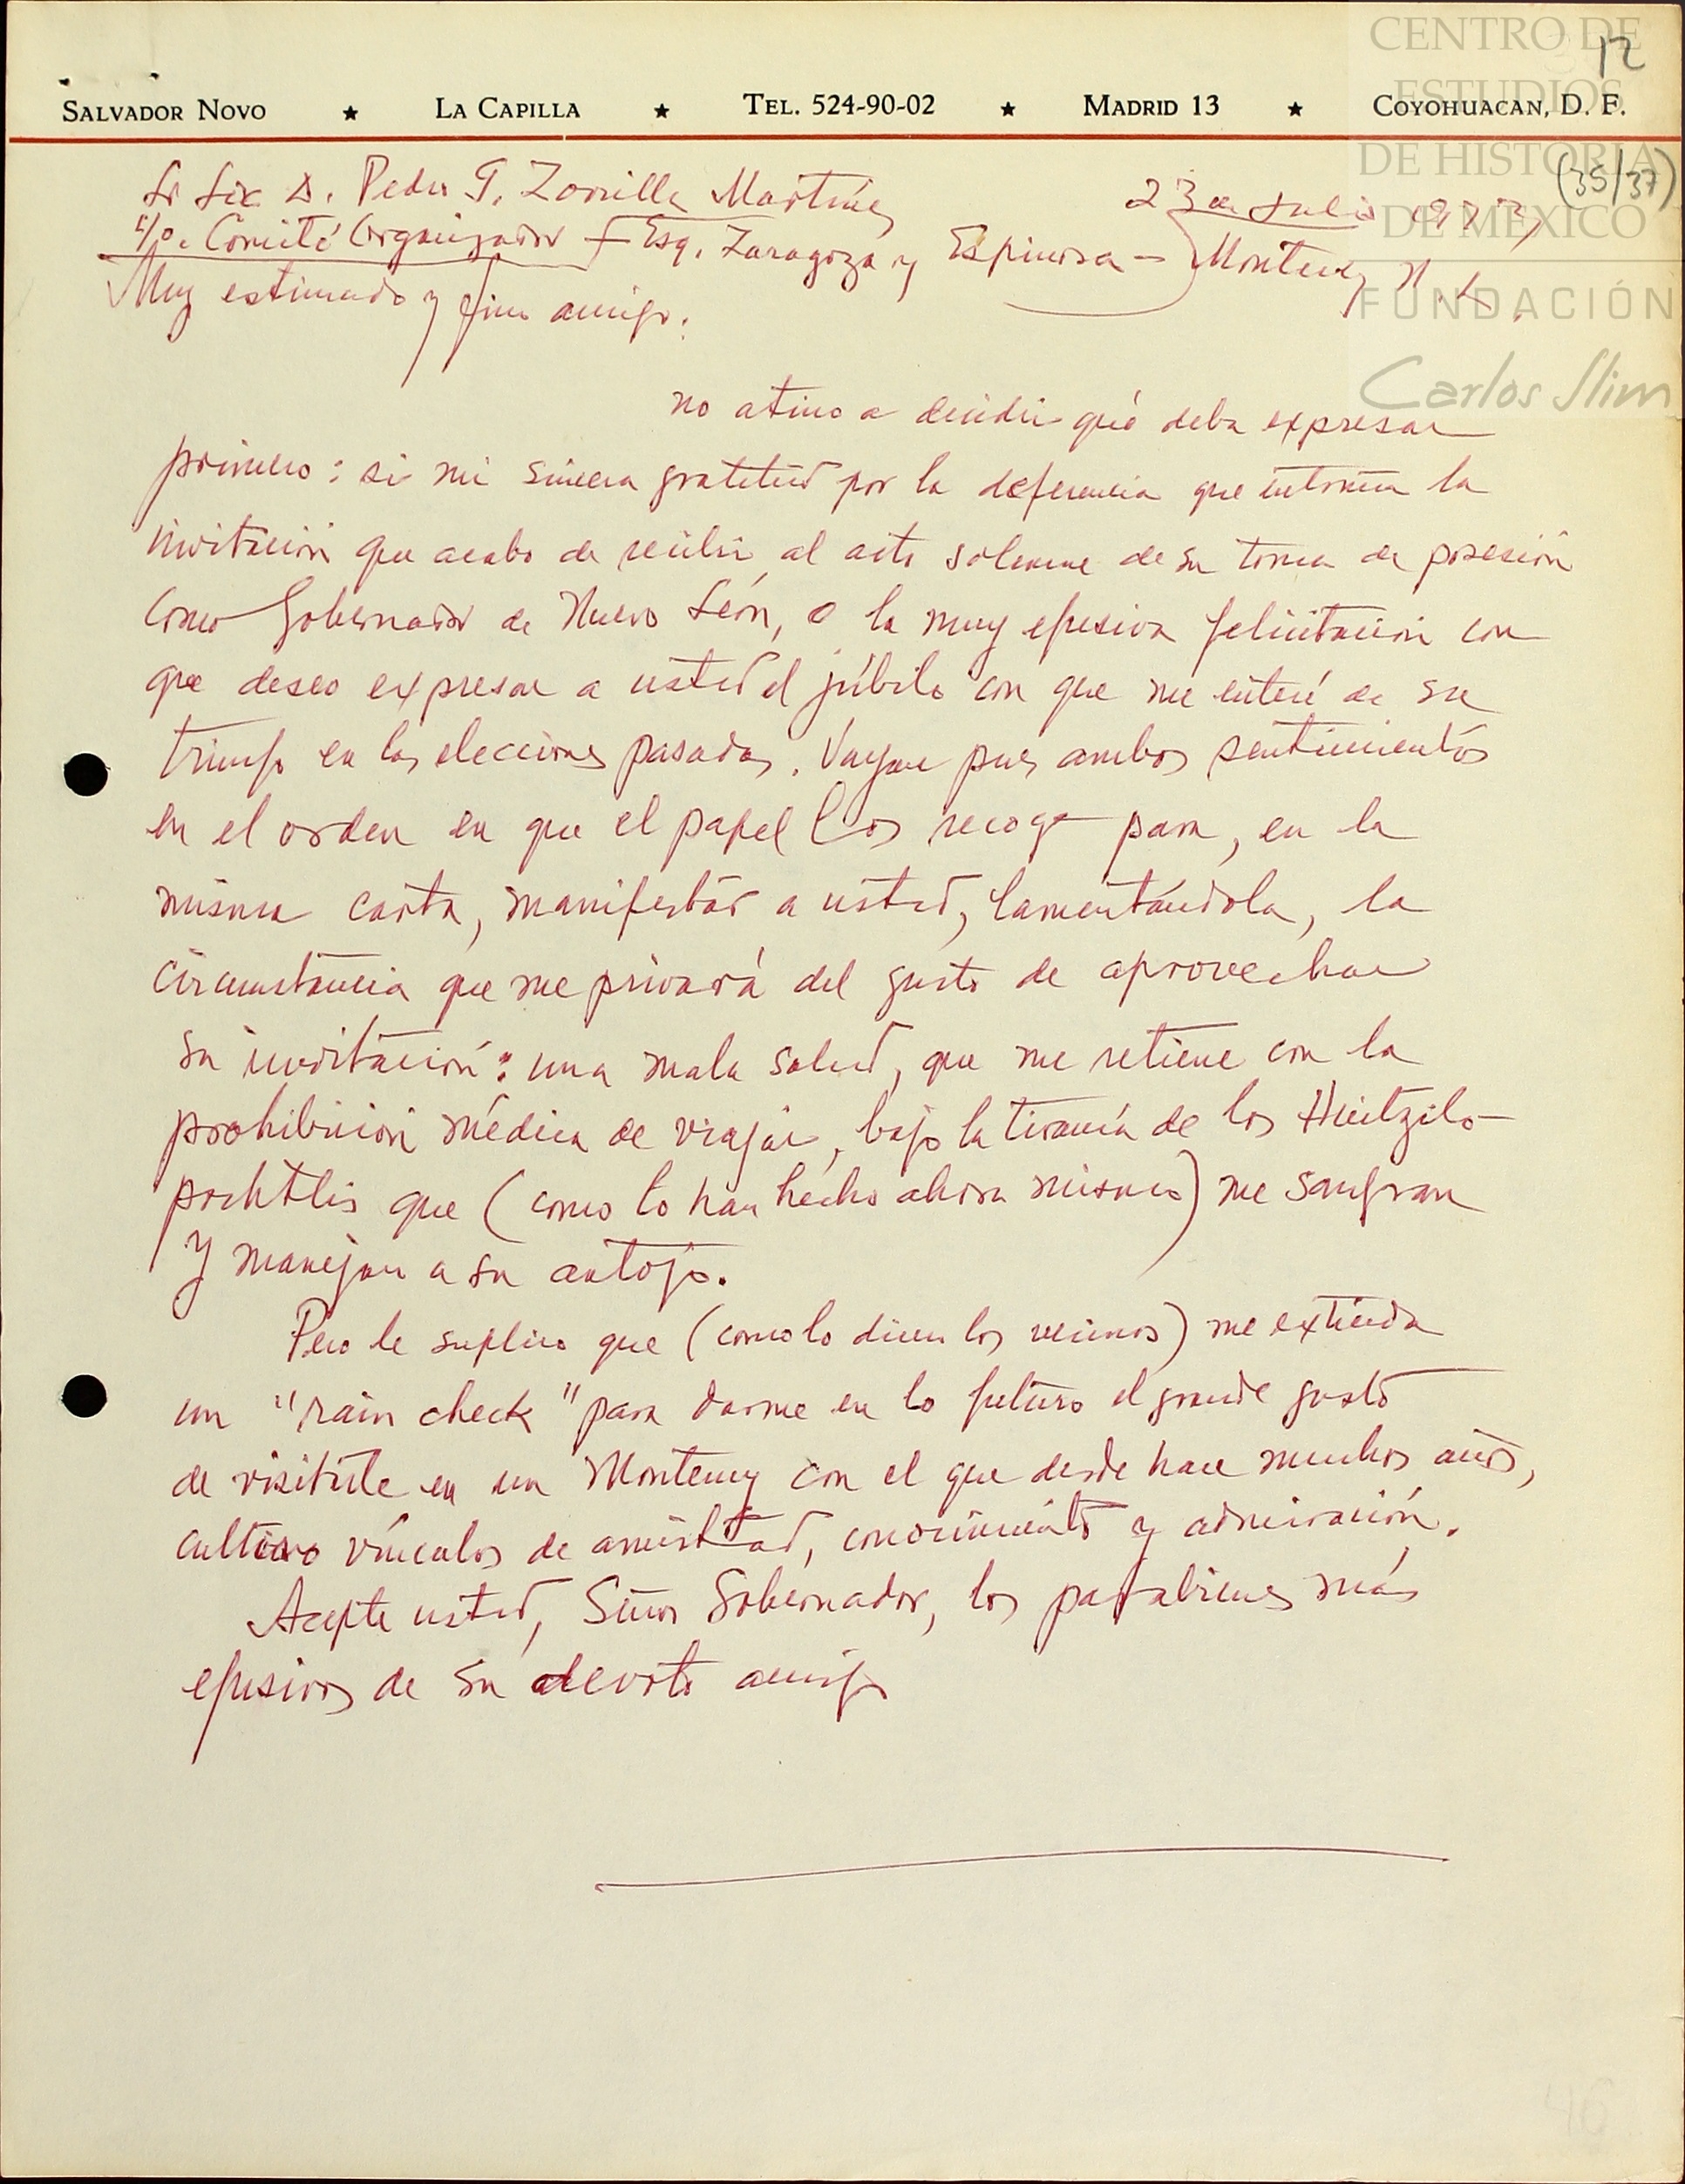 CENTRO DE
ESTUDIOS
DE HISTORIA
DE MÉXICO
FUNDACIÓN
Carlos Slim
12
SALVADOR NOVO ★ LA CAPILLA ★ TEL. 524-90-02 ★ MADRID 13 ★ COYOHUACAN, D. F.
(35/37)
Sr Lic D. Pedro G. Zorrilla Martínez
23 de Julio 1973
c/o. Comité Organizador - Esq. Zaragoza y Espinosa - Monterrey N. L.
Muy estimado y fino amigo:
no atino a decidir qué deba expresar
primero: si mi sincera gratitud por la deferencia que entraña la
invitación que acabo de recibir al acto solemne de su toma de posesión
como Gobernador de Nuevo León, o la muy efusiva felicitación con
que deseo expresar a usted el júbilo con que me enteré de su
triunfo en las elecciones pasadas. Vayan pues ambos sentimientos
en el orden en que el papel los recoge para, en la
misma carta, manifestar a usted, lamentándola, la
circunstancia que me privará del gusto de aprovechar
su invitación: una mala salud, que me retiene con la
prohibición médica de viajar, bajo la tiranía de los Huitzilo-
pochtlis que (como lo han hecho ahora mismo) me sangran
y manejan a su antojo.
Pero le suplico que (como lo dicen los vecinos) me extienda
un "rain check" para darme en lo futuro el grande gusto
de visitarle en un Monterrey con el que desde hace muchos años,
cultivo vínculos de amistad, conocimiento y admiración.
Acepte usted, Señor Gobernador, los parabienes más
efusivos de su devoto amigo
46